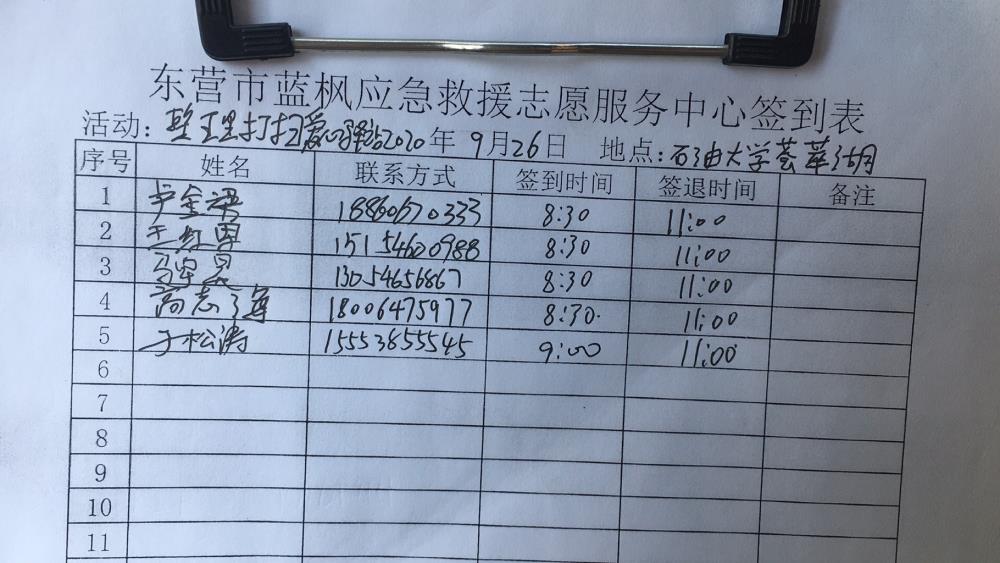 东营市蓝枫应急救援志愿服务中心签到表
活动: 整理打扫爱心驿站2020年 9月26日 地点:石油大学荟萃湖
序号 姓名 联系方式 签到时间 签退时间 备注
1 18860670333 8:30 11:00
2 15154600988 8:30 11:00
3 13054656867 8:30 11:00
4 高志海 18006475977 8:30 11:00
5 于松涛 15553855545 9:00 11:00
6
7
8
9
10
11